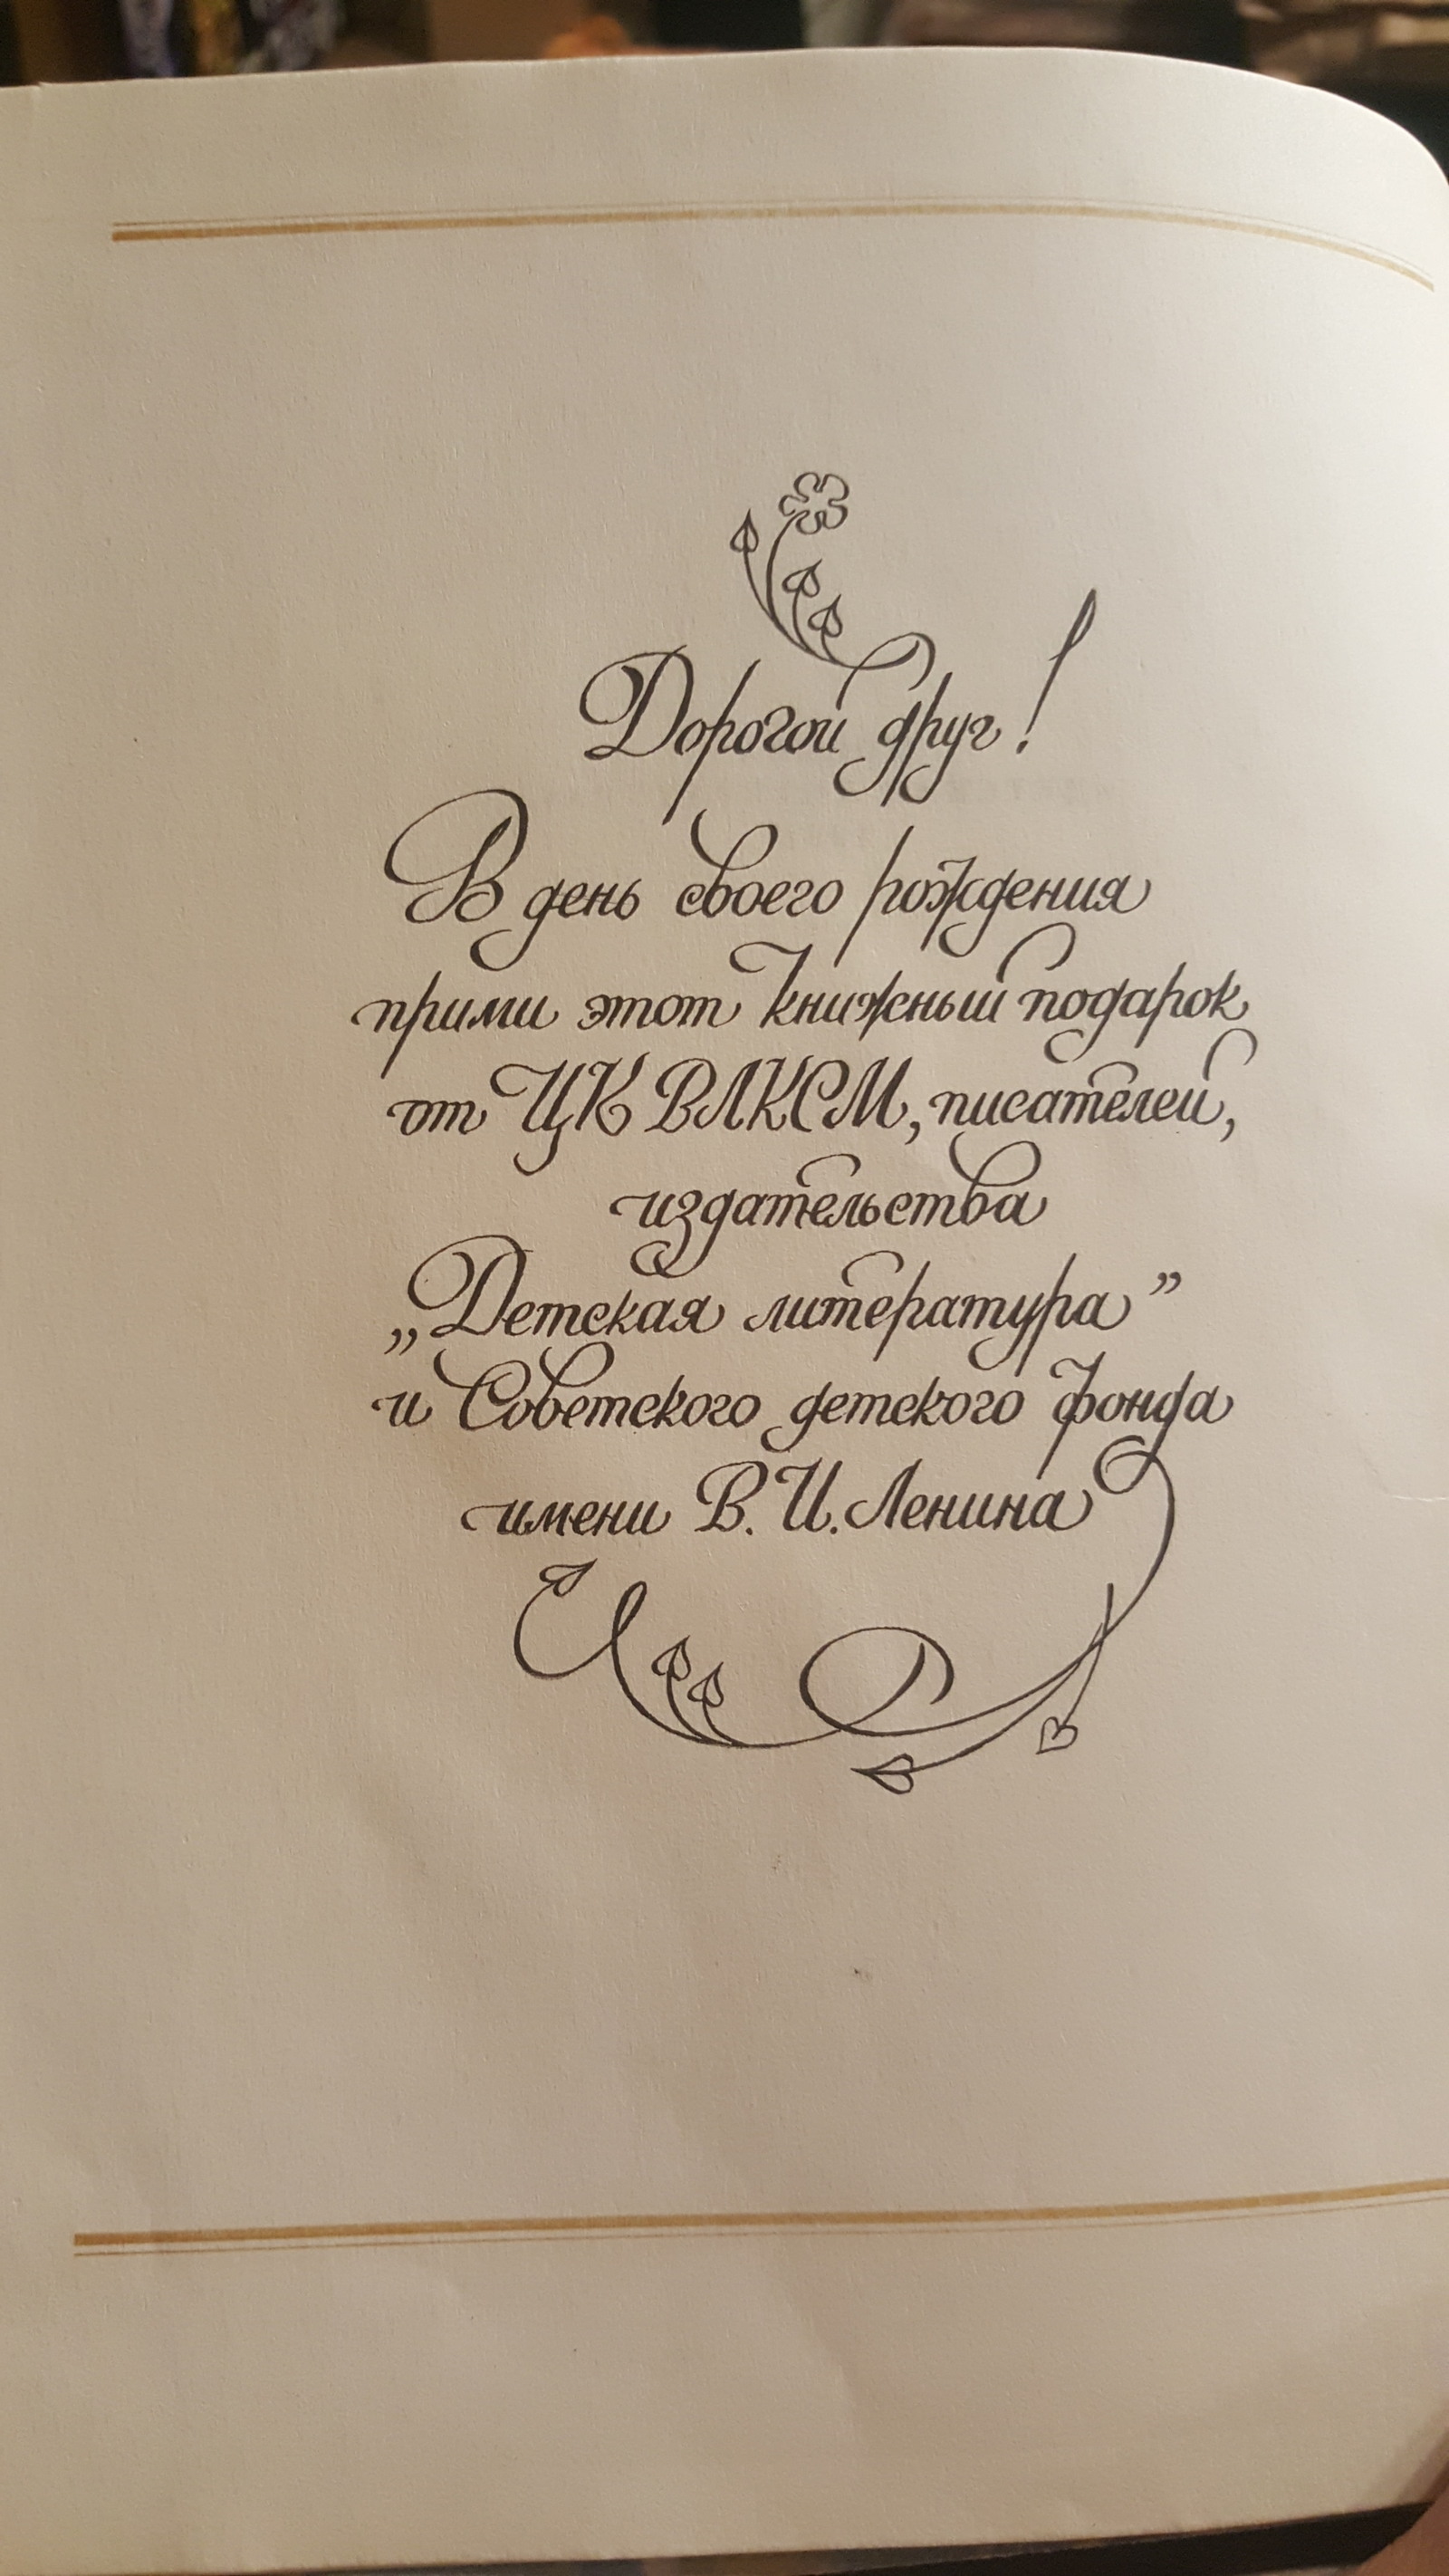 Дорогой друг!
В день своего рождения
прими этот книжный подарок
от ЦК ВЛКСМ, писателей,
издательства
„Детская литература”
и Советского детского фонда
имени В. И. Ленина